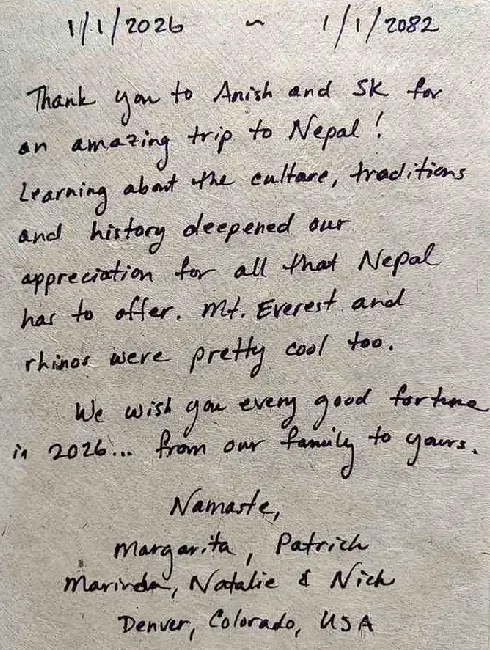 1/1/2026 ~ 1/1/2082
Thank you to Anish and SK for
an amazing trip to Nepal!
Learning about the culture, traditions
and history deepened our
appreciation for all that Nepal
has to offer. Mt. Everest and
rhinos were pretty cool too.
We wish you every good fortune
in 2026... from our family to yours.
Namaste,
Margarita, Patrick
Marinda, Natalie & Nick
Denver, Colorado, USA